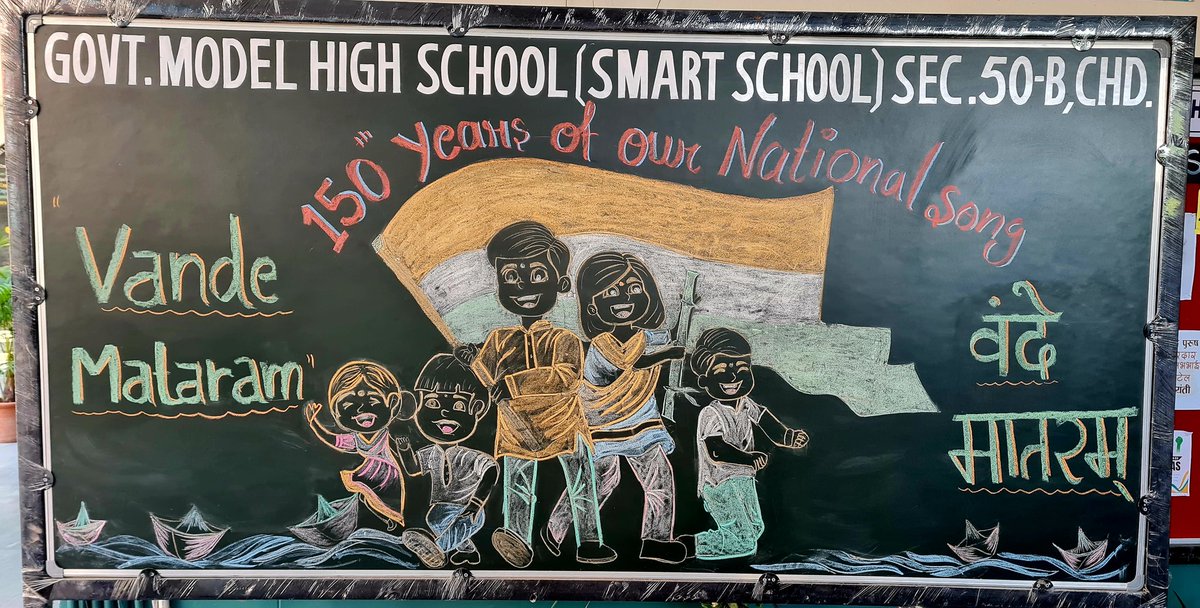 GOVT. MODEL HIGH SCHOOL (SMART SCHOOL) SEC. 50-B, CHD.
150" years of our National song
"Vande
Mataram"
वंदे
मातरम्
पुरुष